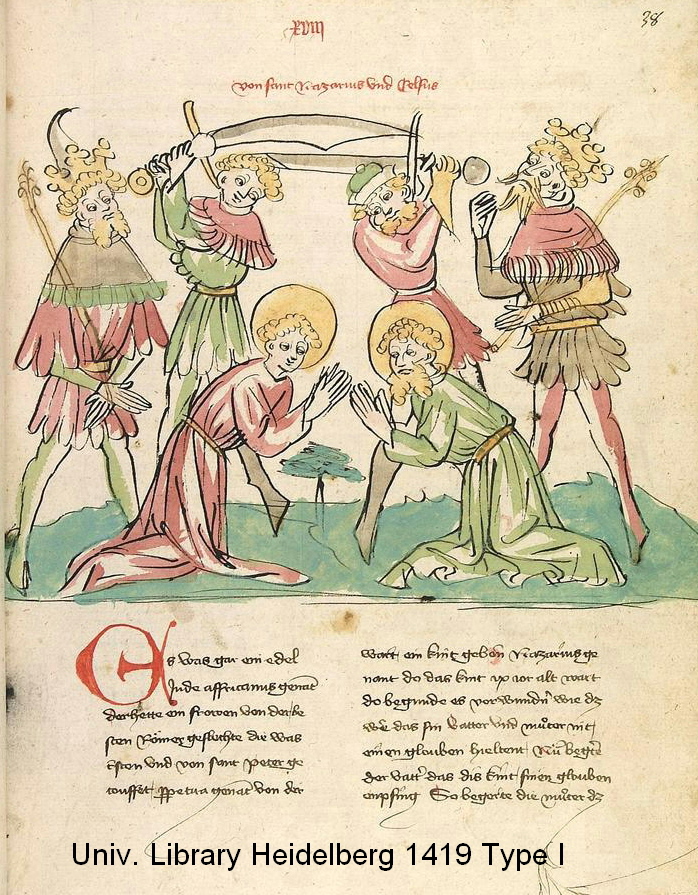 xviii
38
von sant Nazarius vnd Celsus
Es was gar ein edel
Jude affricanus genāt
der hette ein frowen von der be
sten Römer geslechte die was
Cristen vnd von sant peter ge
touffet ꝑpetua genāt von der
wart ein kint geborn Nazarius ge
nant do das kint ix jor alt wart
do begunde es verwundn̄ wie dz
wē das sin vatter vnd muͦter nit
einen glouben hieltent Nū begēt
der vatt͛ das dis kint sinen glouben
enpfing So begerte die muͦter dz
Univ. Library Heidelberg 1419 Type I